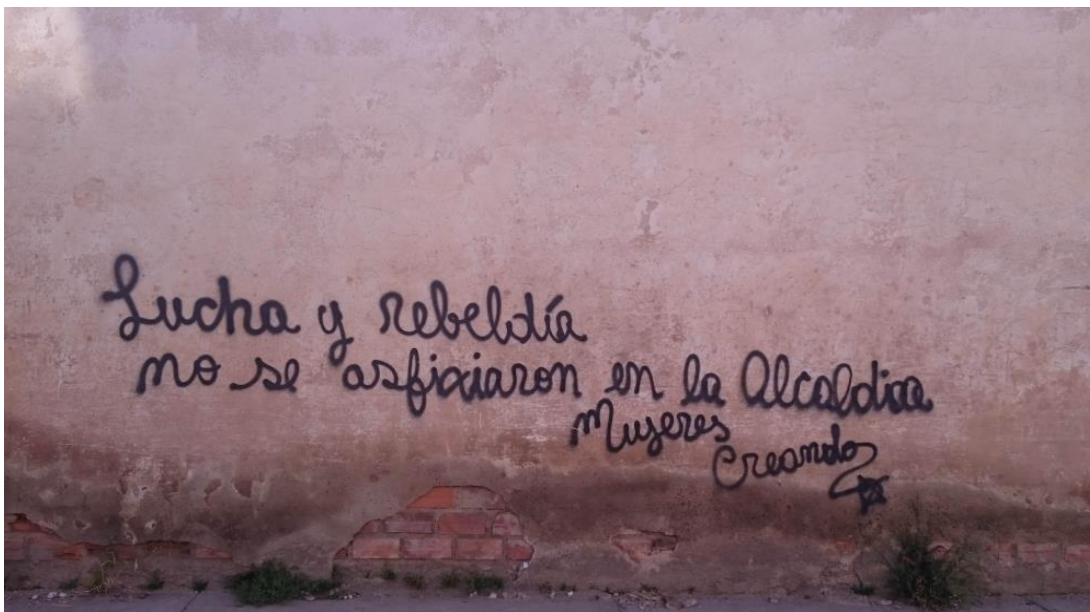 Lucha y rebeldía
no se asfixiaron en la Alcaldia
Mujeres
Creando